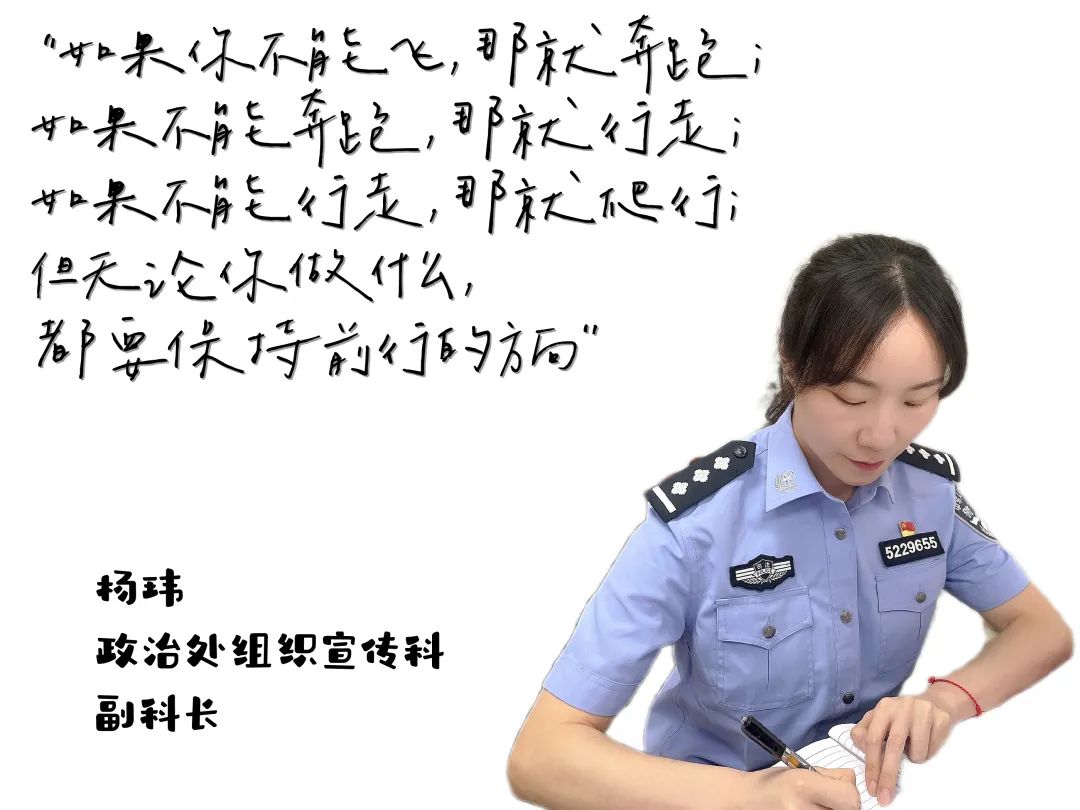 “如果你不能飞，那就奔跑；
如果不能奔跑，那就行走；
如果不能行走，那就爬行；
但无论你做什么，
都要保持前行的方向”
杨玮
政治处组织宣传科
副科长
5229655
POLICE